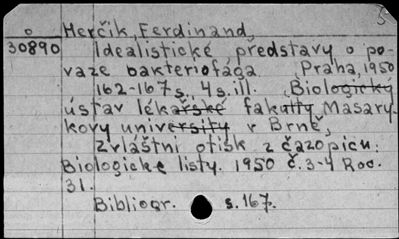 5
o Herčík, Ferdinand,
30890 Idealistické představy o po-
vaze bakteriofága. Praha, 1950
162-167 s., 4 s. ill. Biologický
ústav lékařské fakulty Masary-
kovy university v Brně,
Zvláštní otisk z čazopicu:
Biologické listy. 1950 č. 3-4 Roc.
31.
Bibliogr. s. 167.